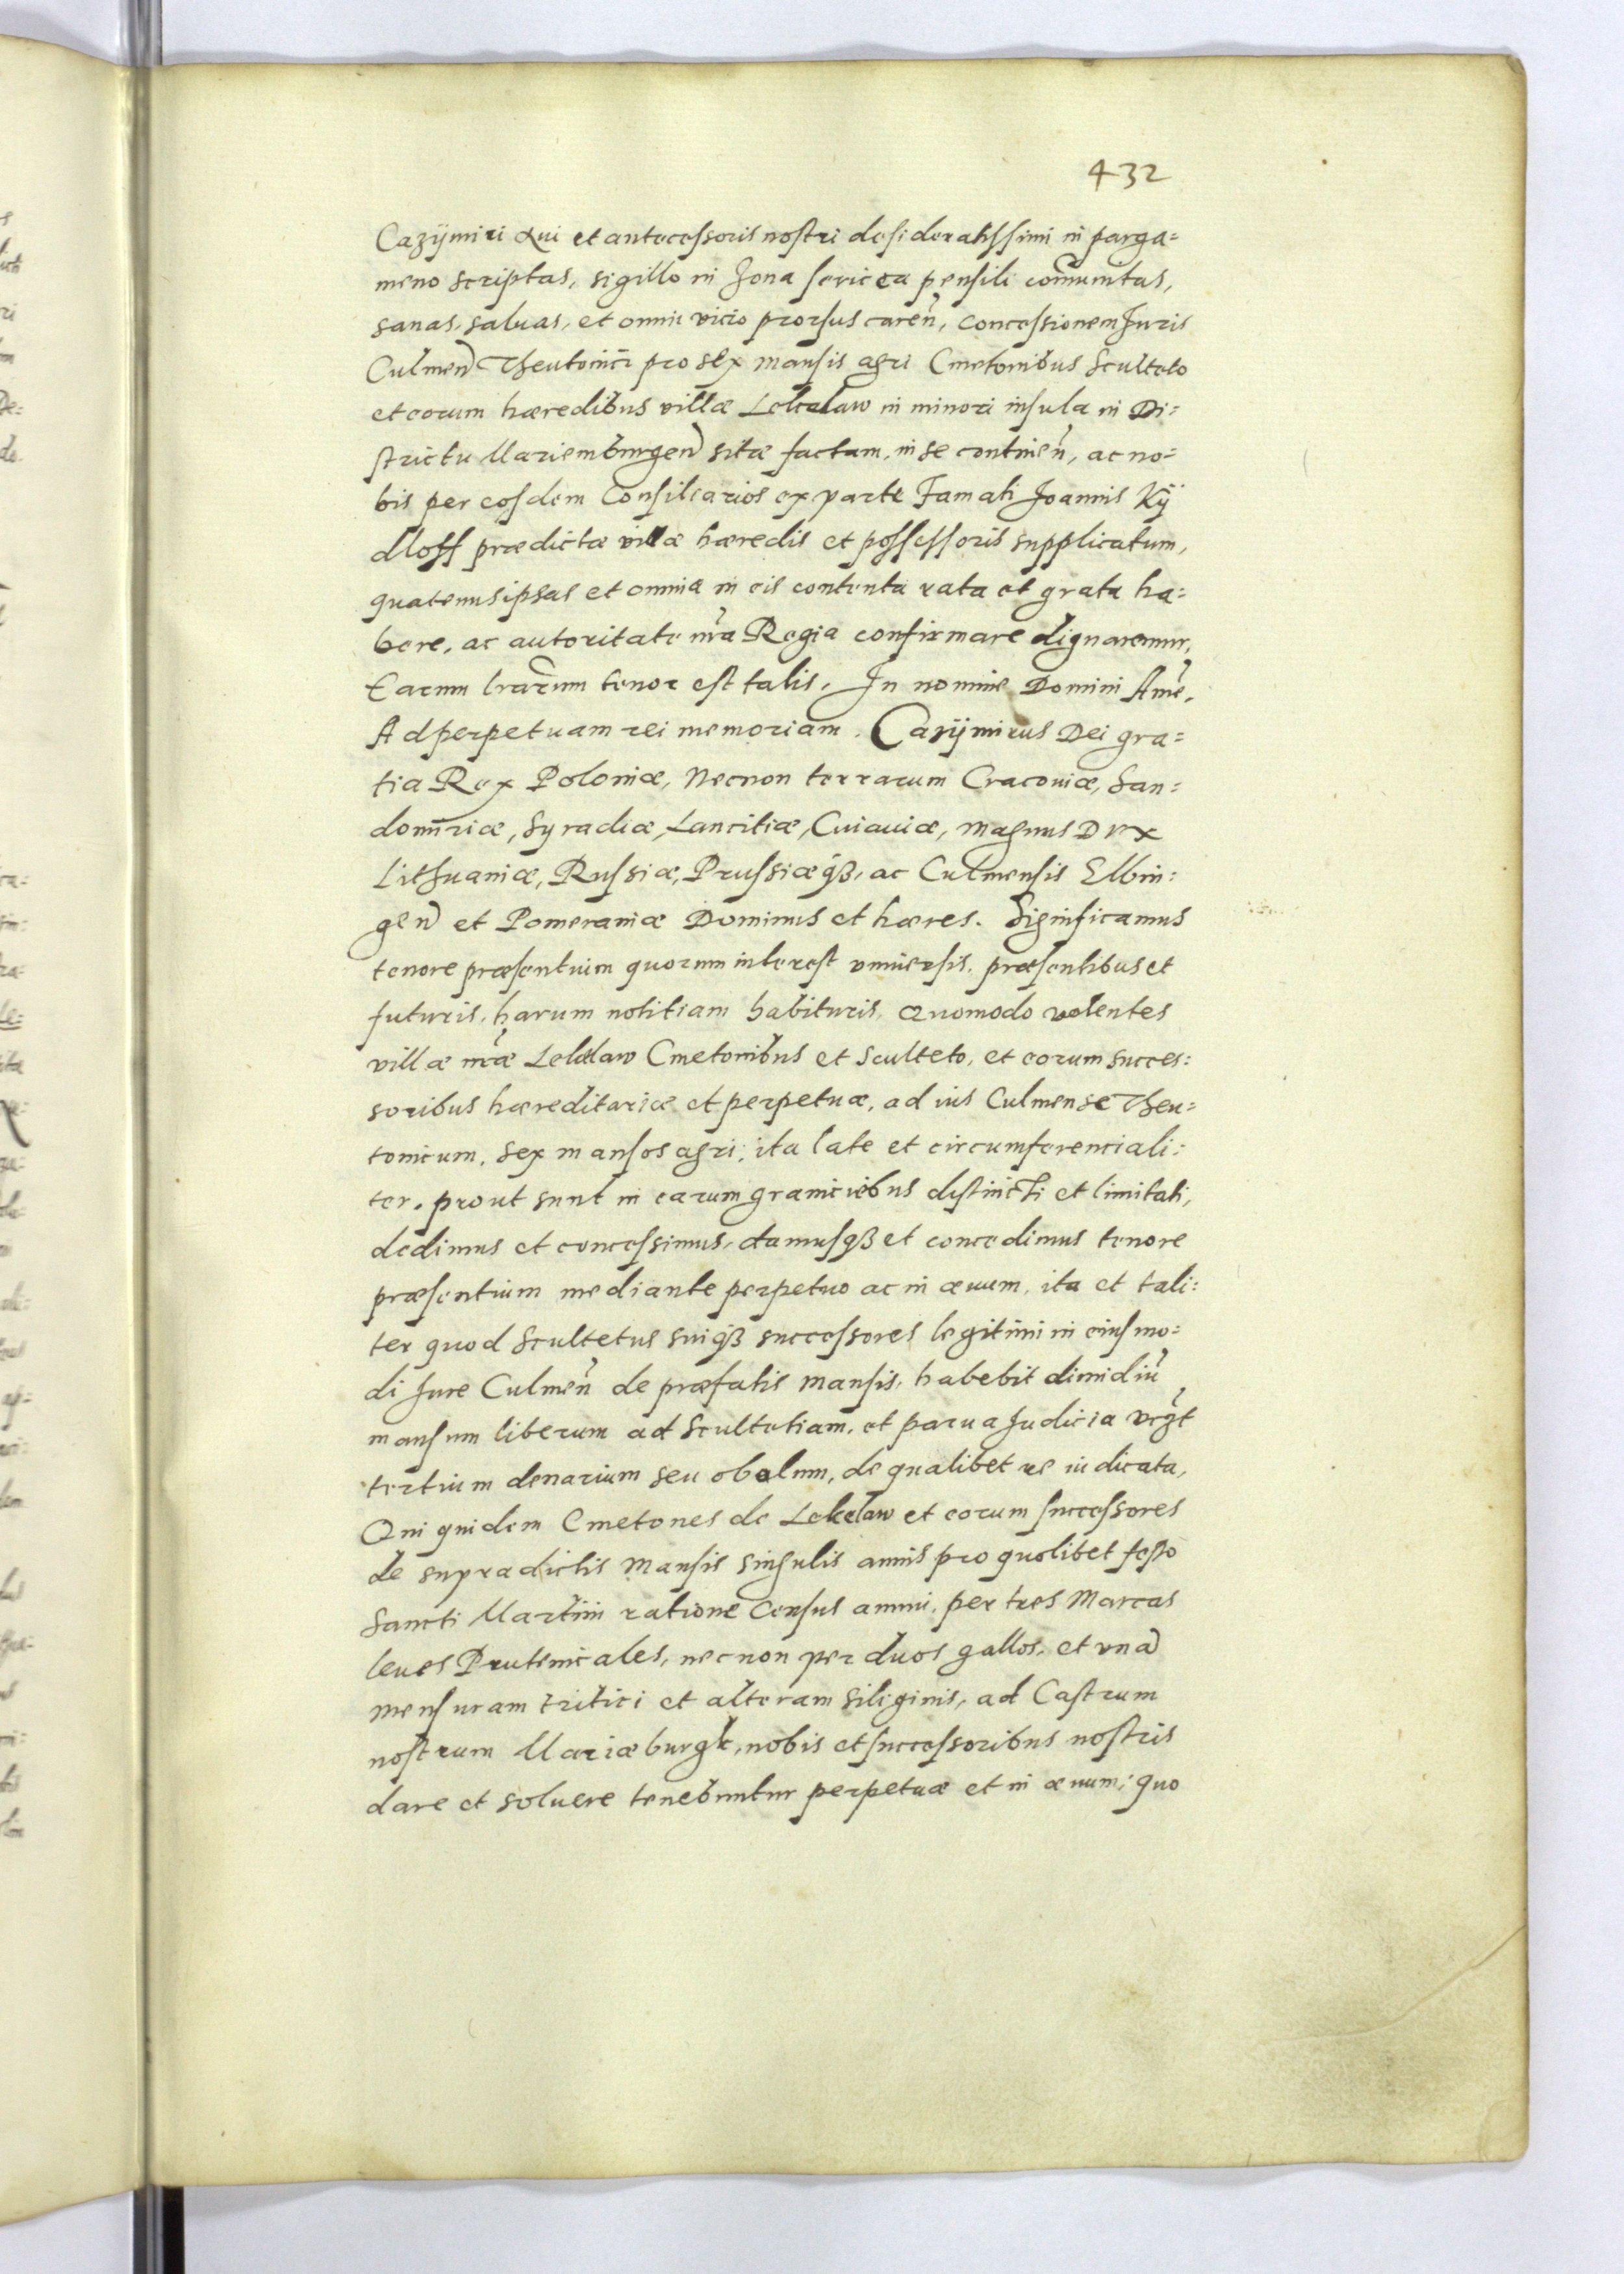 432
Cazijmiri Aui et antecessoris nostri desideratissimi in parga=
meno scriptas, sigillo in Zona sericea pensili com̄unitas,
sanas, saluas, et omni vicio prorsus caren̄, concessionem Iuris
Culmen̄ Theutonici pro sex mansis agri Cmetonibus Sculteto
et eorum hæredibus villæ Lekelaw in minori insula in Di=
strictu Mariemburgen̄ sitæ factam, in se continen̄, ac no=
bis per eosdem Consiliarios ex parte Famati Joannis Kÿ
dloff prædictæ villæ hæredis et possessoris supplicatum,
quatenus ipsas et omnia in eis contenta rata et grata ha=
bere, ac autoritate nr̄a Regia confirmare dignaremur,
Earum lrārum tenor est talis. In nomine Domini Amē.
Ad perpetuam rei memoriam. Cazijmirus Dei gra=
tia Rex Poloniæ, Necnon terrarum Cracouiæ, San=
domīriæ, Syradiæ, Lancitiæ, Cuiauiæ, Magnus Dvx
Lithuaniæ, Russiæ, Prussiæqꝫ, ac Culmensis Elbin=
gen̄ et Pomeraniæ Dominus et hæres. Significamus
tenore præsentium quorum interest vniuersis, præsentibus et
futuris, harum notitiam habituris, Quomodo volentes
villæ nr̄æ Lekelaw Cmetonibus et Sculteto, et eorum succes=
soribus hæreditariæ et perpetuæ, ad ius Culmense Theu=
tonicum, sex mansos agri, ita late et circumferenciali=
ter, prout sunt in earum graniciebus distincti et limitati,
dedimus et concessimus, damusqꝫ et concedimus tenore
præsentium mediante perpetuo ac in æuum, ita et tali=
ter quod Scultetus suiqꝫ successores legitimi in eiusmo=
di Iure Culmen̄ de præfatis mansis, habebit dimidiū
mansum liberum ad Scultetiam, et parua Iudicia vīgt
tertium denarium seu obolum, de qualibet re iudicata,
Qui quidem Cmetones de Lekelaw et eorum successores
de supradictis Mansis singulis annis pro quolibet festo
Sancti Martini ratione Census annui, per tres Marcas
leues Prutenicales, necnon per duos gallos, et vnā
mensuram tritici et alteram siliginis, ad Castrum
nostrum Mariæburgk, nobis et successoribus nostris
dare et soluere tenebuntur perpetuæ et in æuum, quo